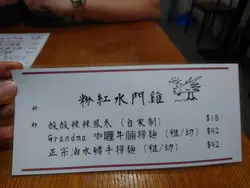 粉紅水門雞
新
酸酸辣辣鳳爪（自家制） $18
師 Grandma 咖喱牛腩撈麵（粗/幼） $42
正宗泊水豬手撈麵（粗/幼） $42